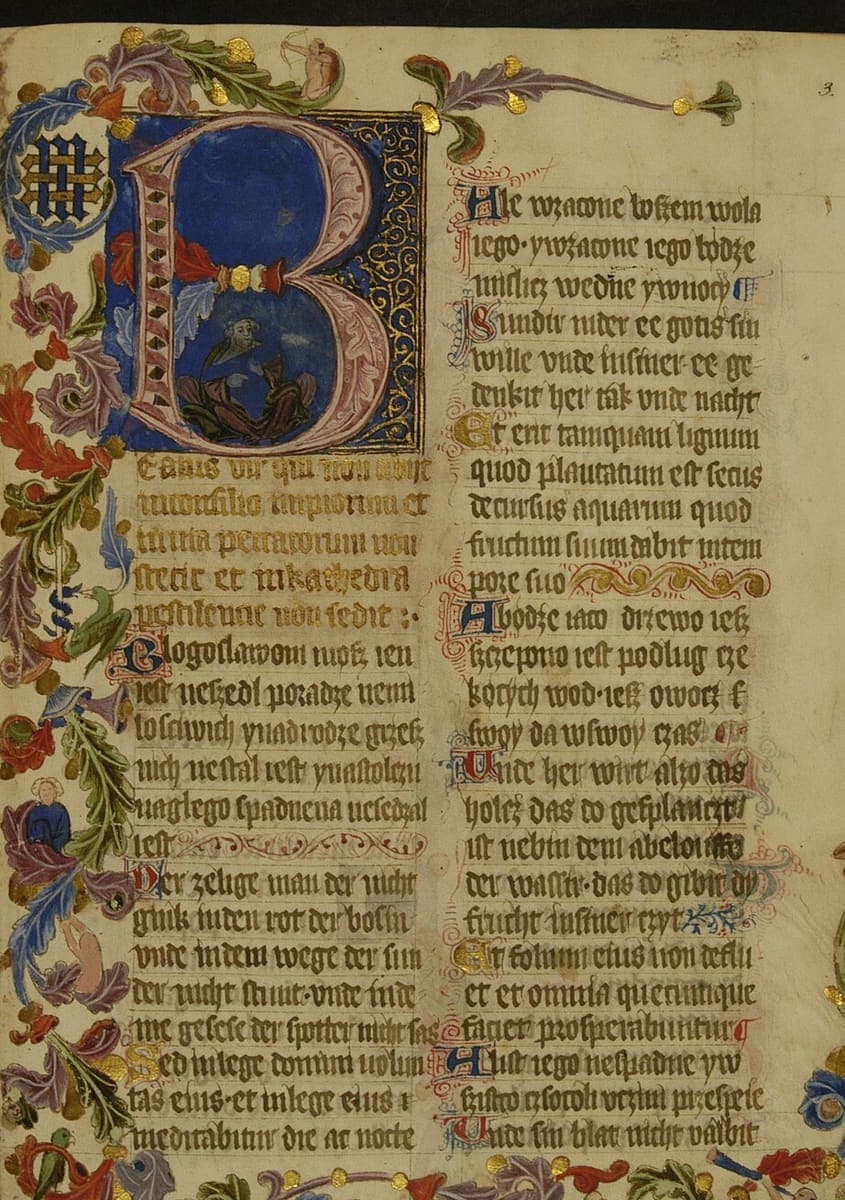 3.
B
eatus vir qui non abijt
in consilio impiorum et
in via peccatorum non
stetit et in kathedra
pestilencie non sedit :·
Blogoslawoni mosz ien
iest neszedl poradze nemi
loscivich ynadrodze grzesz
nich nestal iest ynastolczu
naglego spadnena nesedzal
iest
Der zelige man der nicht
gink inden rot der bosin
vnde indem wege der sun
der nicht stunt· vnde inde
me gesese der spotter nicht sas
Sed in lege domini uolun
tas eius· et in lege eius
meditabitur die ac nocte
Ale wzacone boszem wola
iego· ywzacone iego bodze
misliz wedne ywnocy
Sundir inder ee gotis sin
wille vnde insiner ee ge
denkit her tak vnde nacht
Et erit tamquam lignum
quod plantatum est secus
decursus aquarum quod
fructum suum dabit in tem
pore suo
A bodze iaco drzewo iesz
szczepono iest podlug cze
kocych wod· iesz owocz
swoy da wswoy czas
Unde her wirt alzo das
holcz das do gesplanczt
ist nebin dem abelouffe
der wassir· das do gibit dy
frucht insiner czyt
Et folium eius non deflu
et et omnia quecumque
faciet prosperabuntur
A list iego nespadne yw
szistko czsocoli uczini przespeie
Unde sin blat nicht valbit